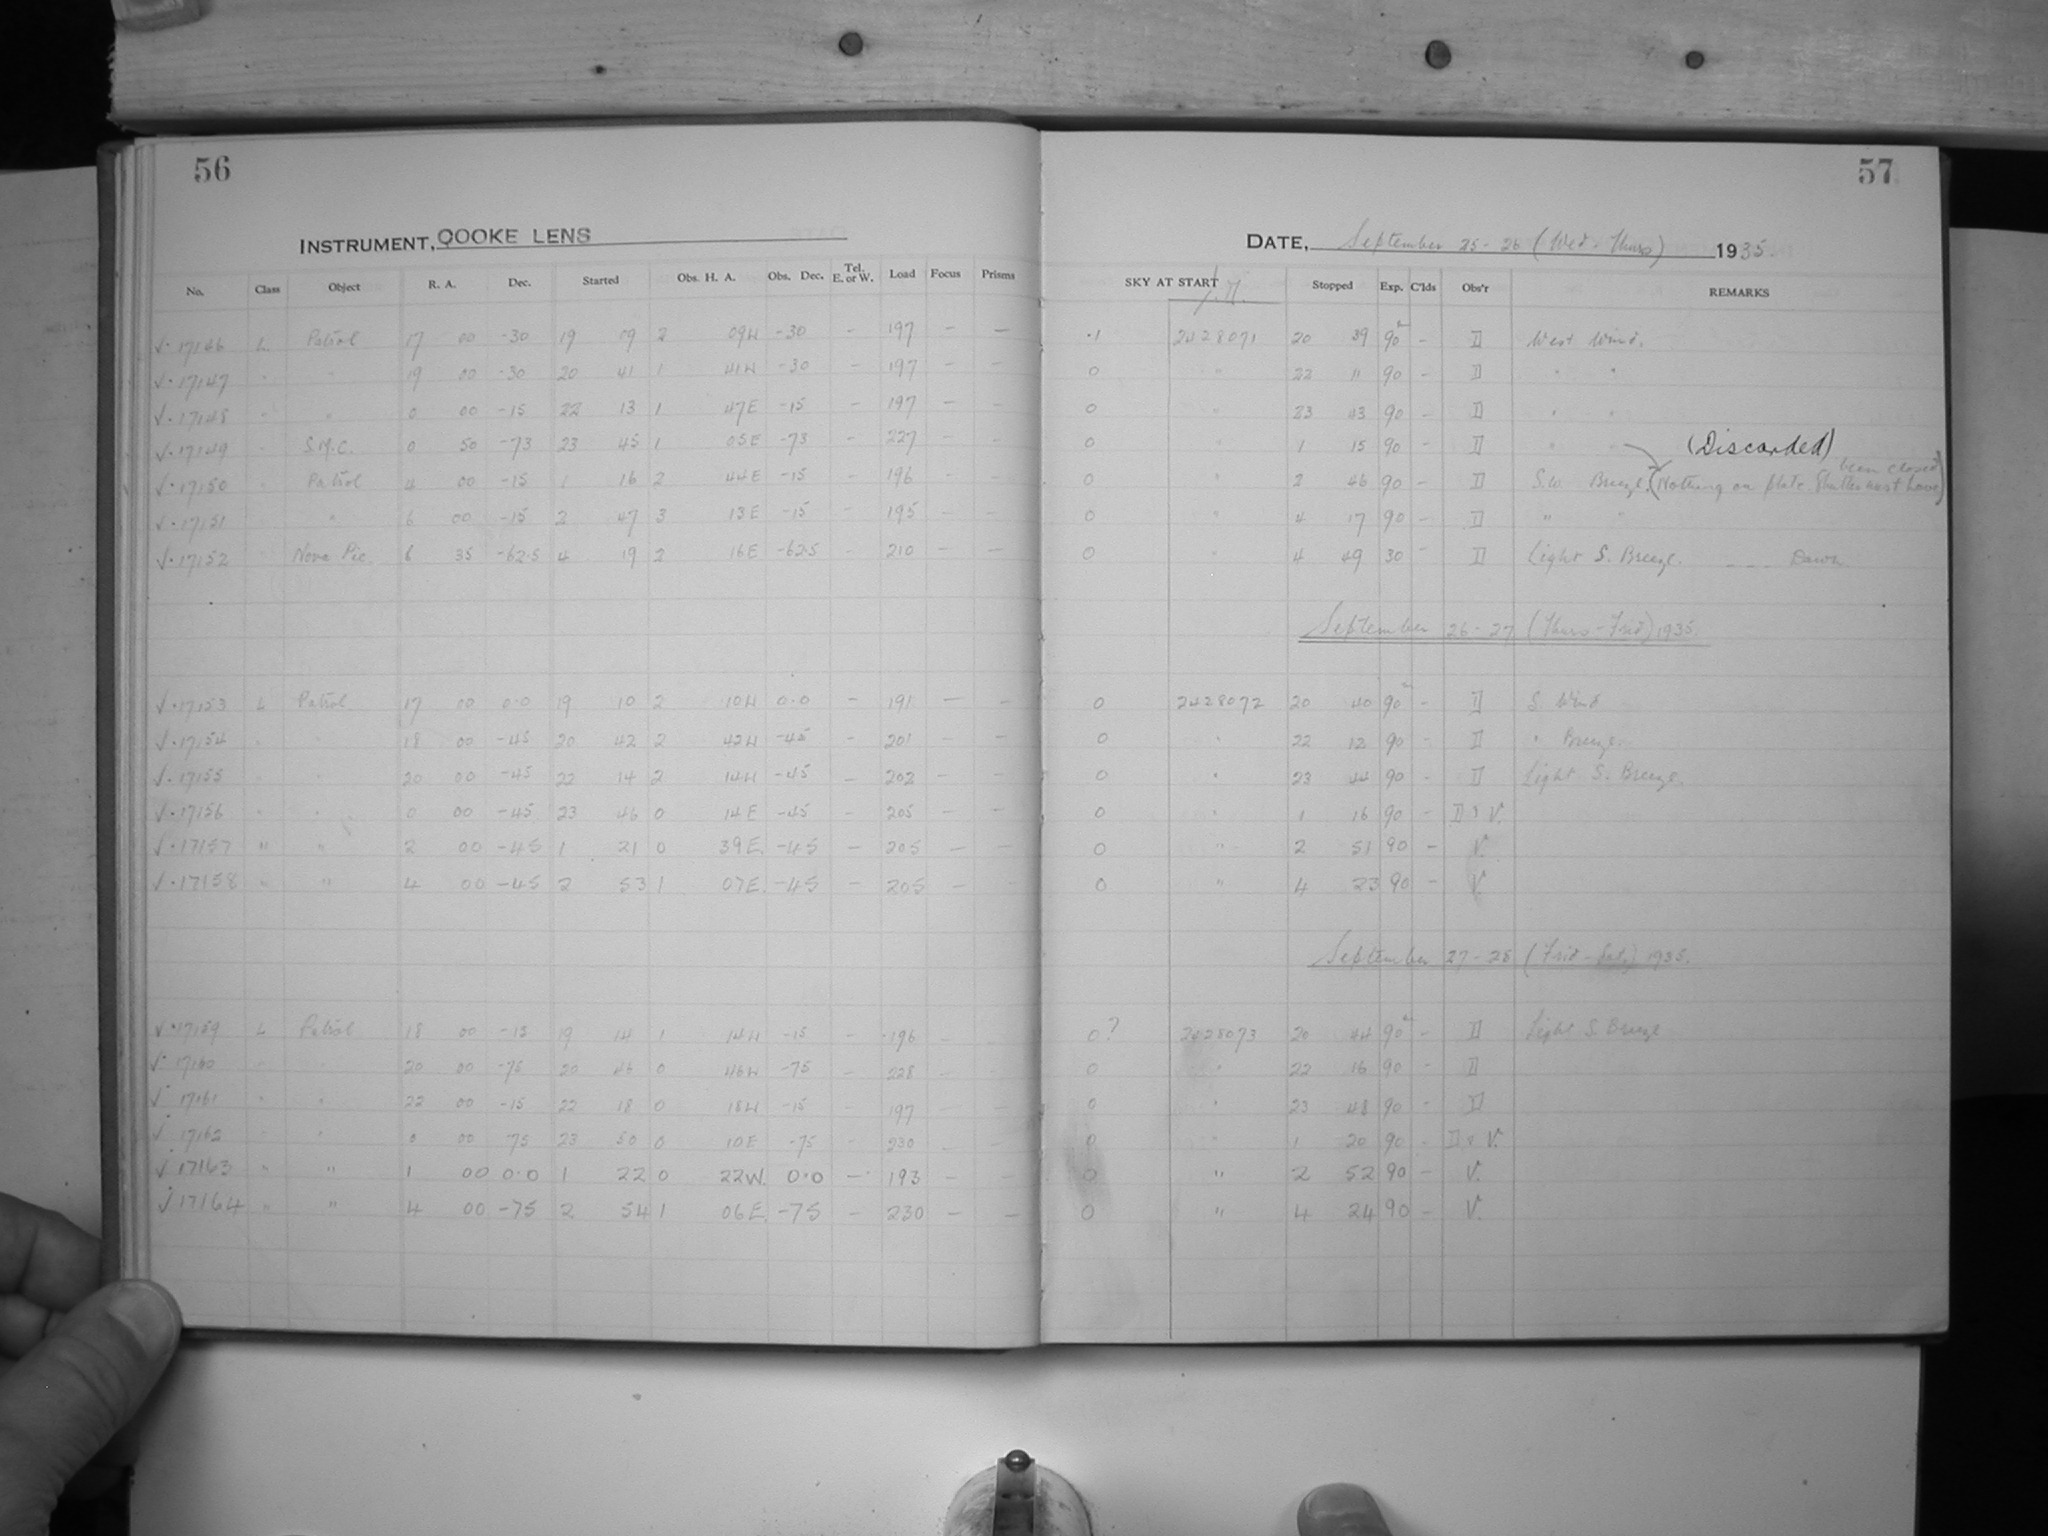 56
57
INSTRUMENT, COOKE LENS
DATE, September 25-26 (Wed - Thurs) 1935.
No. Class Object R. A. Dec. Started Obs. H. A. Obs. Dec. Tel. E. or W. Load Focus Prisms SKY AT START Stopped Exp. C'lds Obs'r REMARKS
J.D.
√ · 17146 L Patrol 17 00 -30 19 09 2 09W -30 - 197 - - ·1 2428071 20 39 90m - D West Wind.
√ · 17147 " " 19 00 -30 20 41 1 41W -30 - 197 - - 0 " 22 11 90 - D " "
√ · 17148 " " 0 00 -15 22 13 1 47E -15 - 197 - - 0 " 23 43 90 - D " "
√ · 17149 " S.M.C. 0 50 -73 23 45 1 05E -73 - 227 - - 0 " 1 15 90 - D " " (Discarded)
√ · 17150 " Patrol 4 00 -15 1 16 2 44E -15 - 196 - - 0 " 2 46 90 - D S.W Breeze. (Nothing on plate. Shutter must have been closed)
√ · 17151 " " 6 00 -15 2 47 3 13E -15 - 195 - - 0 " 4 17 90 - D " "
√ · 17152 " Nova Pic. 6 35 -62.5 4 19 2 16E -62.5 - 210 - - 0 " 4 49 30 - D Light S. Breeze. - - - Dawn
September 26-27 (Thurs - Frid) 1935.
√ · 17153 L Patrol 17 00 0.0 19 10 2 10W 0.0 - 191 - - 0 2428072 20 40 90m - D S. Wind
√ · 17154 " " 18 00 -45 20 42 2 42W -45 - 201 - - 0 " 22 12 90 - D " Breeze.
√ · 17155 " " 20 00 -45 22 14 2 14W -45 - 202 - - 0 " 23 44 90 - D Light S. Breeze.
√ · 17156 " " 0 00 -45 23 46 0 14E -45 - 205 - - 0 " 1 16 90 - D & V.
√ · 17157 " " 2 00 -45 1 21 0 39E. -45 - 205 - - 0 " 2 51 90 - V.
√ · 17158 " " 4 00 -45 2 53 1 07E. -45 - 205 - - 0 " 4 23 90 - V.
September 27-28 (Frid - Sat) 1935.
√ · 17159 L Patrol 18 00 -15 19 14 1 14W -15 - 196 - - 0? 2428073 20 44 90m - D Light S. Breeze
√ 17160 " " 20 00 -75 20 46 0 46W -75 - 228 - - 0 " 22 16 90 - D
√ 17161 " " 22 00 -15 22 18 0 18W -15 - 197 - - 0 " 23 48 90 - D
√ 17162 " " 0 00 -75 23 50 0 10E -75 - 230 - - 0 " 1 20 90 - D & V.
√ 17163 " " 1 00 0.0 1 22 0 22W. 0.0 - 193 - - 0 " 2 52 90 - V.
√ 17164 " " 4 00 -75 2 54 1 06E. -75 - 230 - - 0 " 4 24 90 - V.